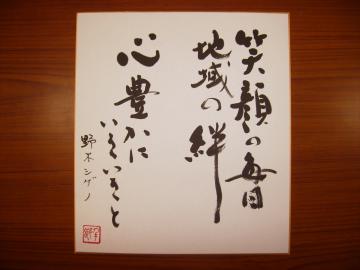 笑顔の毎日
地域の絆
心豊かに
いきいきと
野木シゲノ